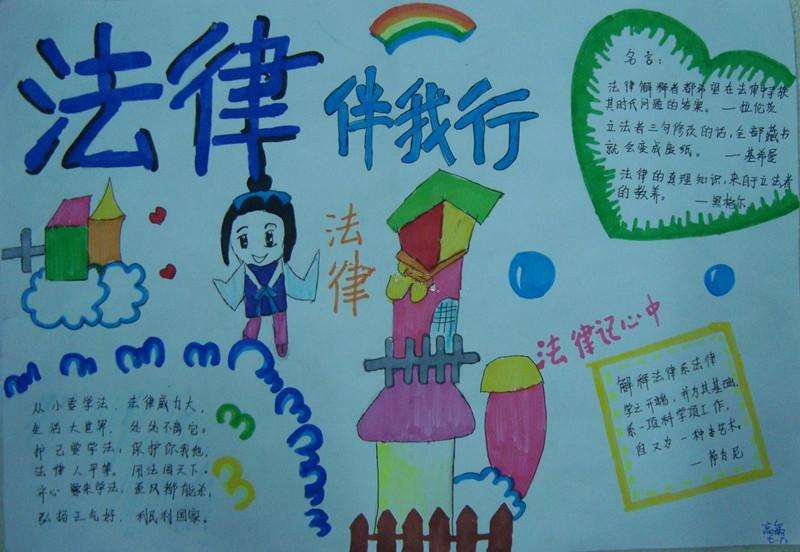 法律
伴我行
名言：
法律解释者都希望在法律中寻获
其时代问题的答案。 —拉伦茨
立法者三句修改的话，全部藏书
就会变成废纸。 —基希曼
法律的真理知识，来自于立法者
的教养。 —黑格尔
法律
法律记心中
解释法律系法律
学之开端，并为其基础，
系一项科学项工作，
但又为一种艺术。
—萨维尼
从小要学法，法律威力大，
生活大世界，处处不离它。
自己要学法，保护你我他，
法律人平等。用法闯天下。
开心 来学法，歪风都能杀，
弘扬正气好，利民利国家。